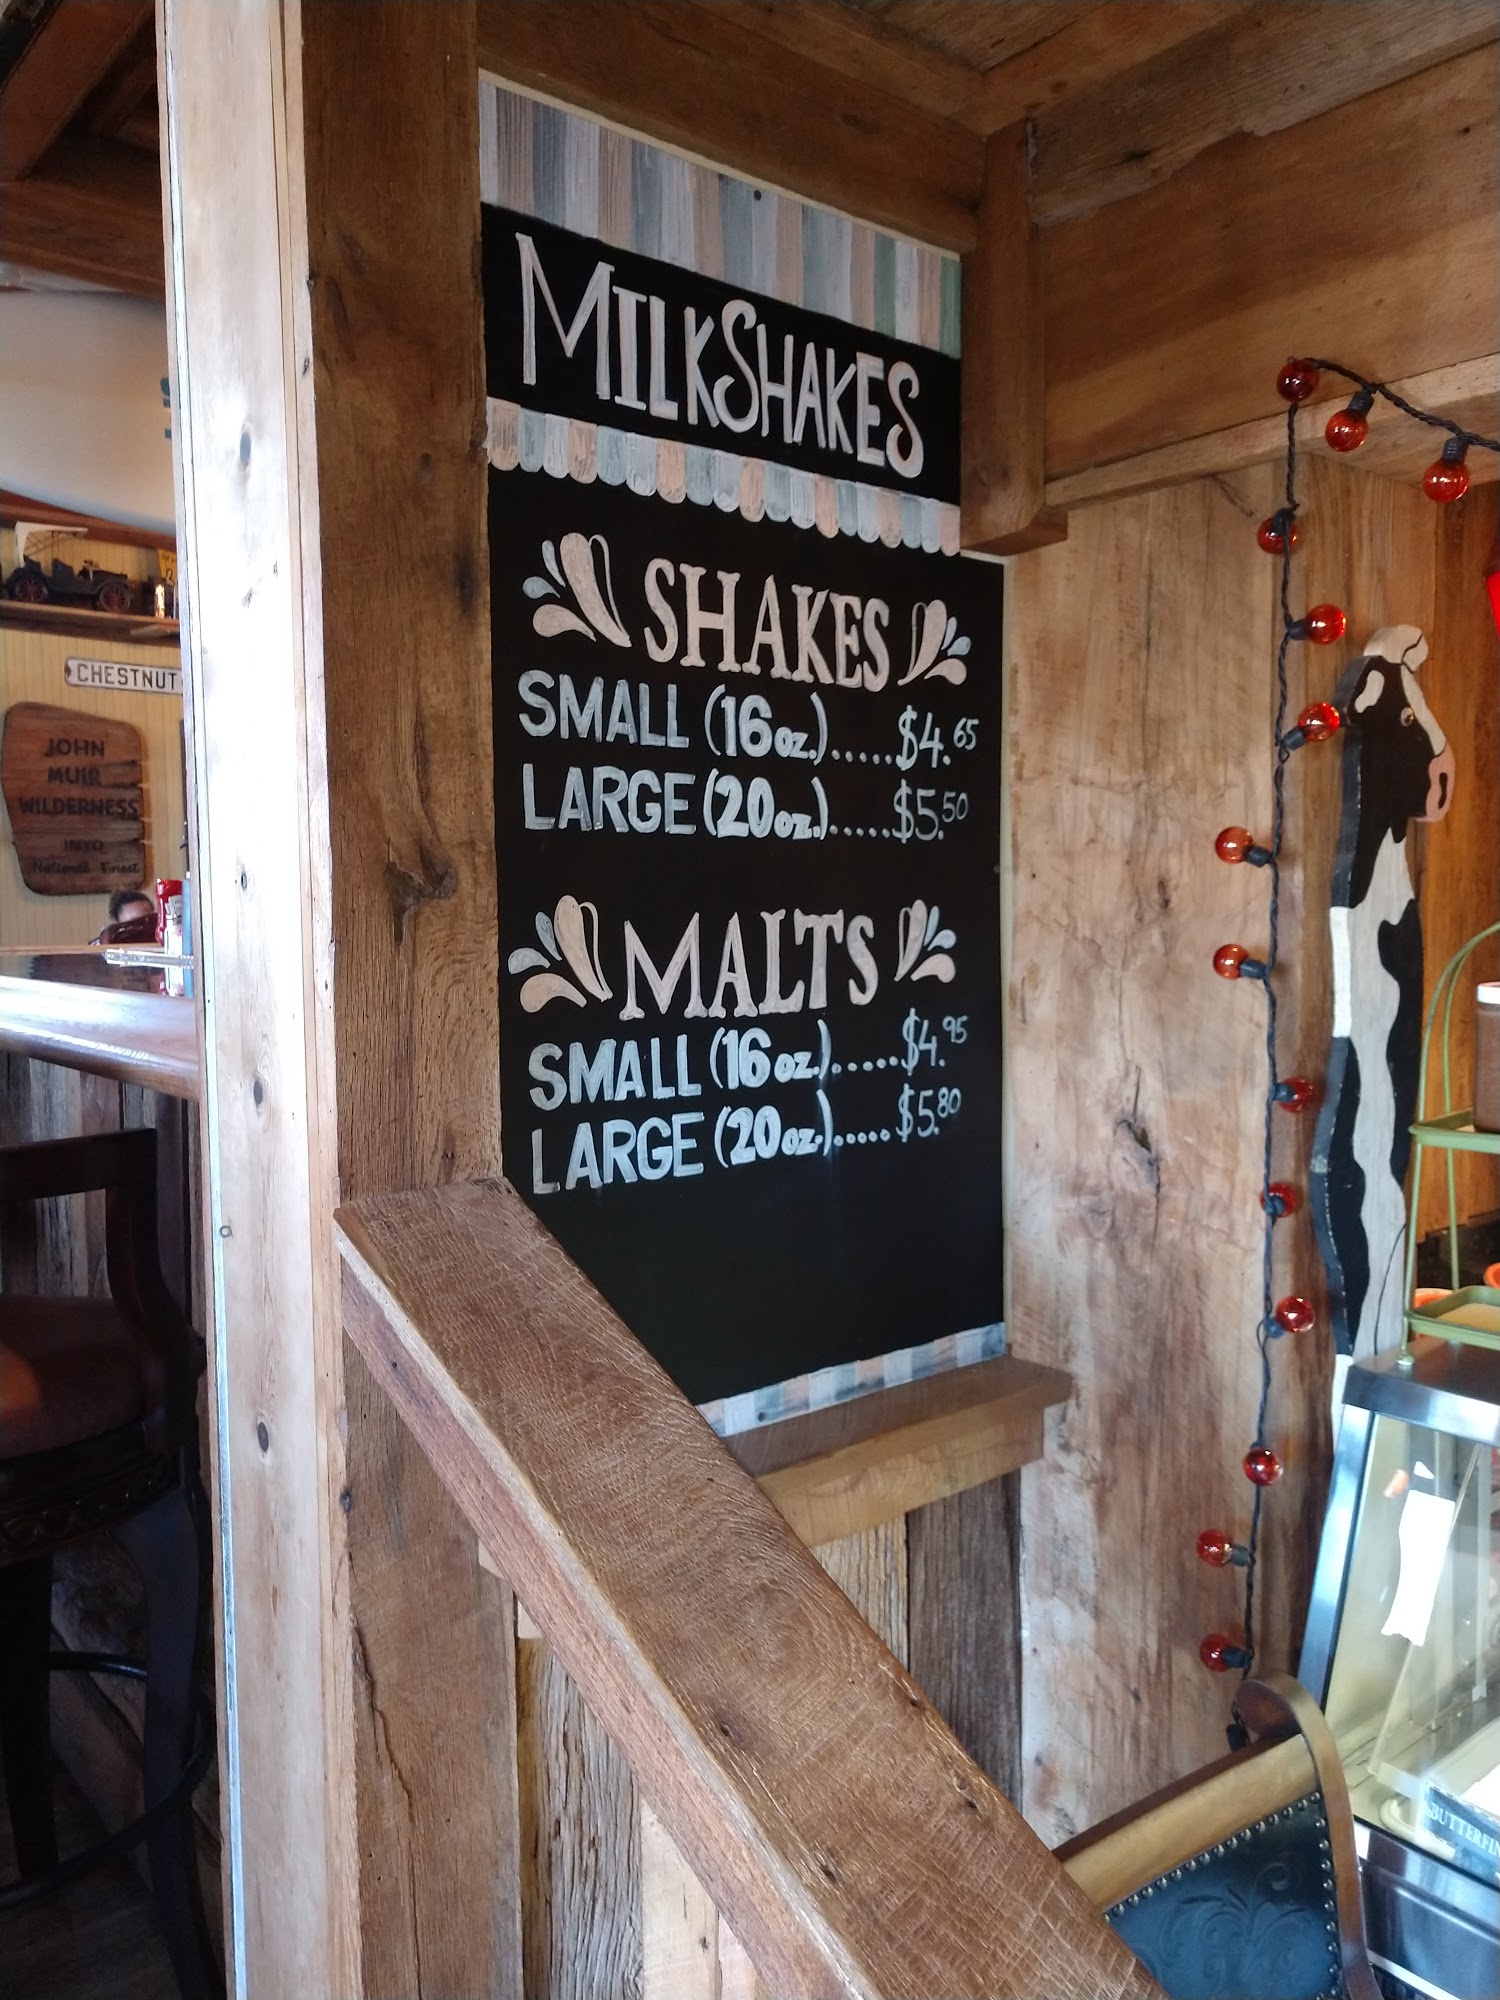 MILKSHAKES
SHAKES
SMALL (16 oz.).....$4.65
LARGE (20 oz.).....$5.50
MALTS
SMALL (16 oz.).....$4.95
LARGE (20 oz.).....$5.80
CHESTNUT
JOHN
MUIR
WILDERNESS
INYO
National Forest
BUTTERFIN